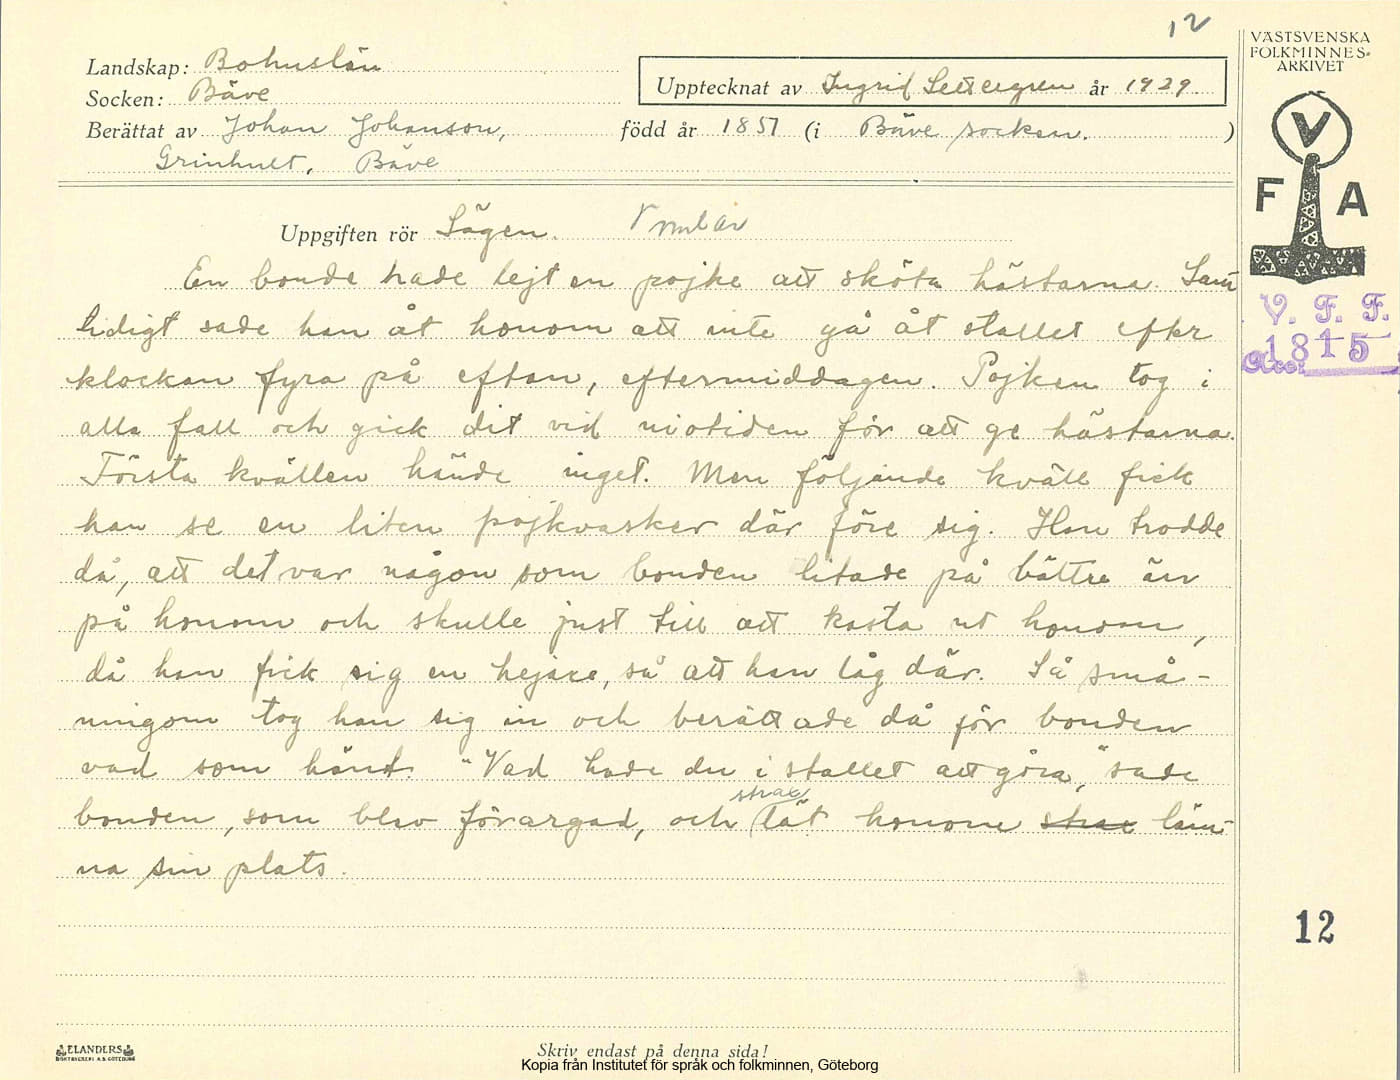 12
VÄSTSVENSKA
FOLKMINNES-
ARKIVET
Landskap: Bohuslän
Upptecknat av Ingrid Settergren år 1929.
Socken: Bäve
Berättat av Johan Johanson, född år 1857 (i Bäve socken. )
Grinhult, Bäve
V
F A
Uppgiften rör Sägen.
En bonde hade lejt en pojke att sköta hästarna. Sam-
tidigt sade han åt honom att inte gå åt stallet efter
klockan fyra på eftan, eftermiddagen. Pojken tog i
alla fall och gick dit vid niotiden för att ge hästarna.
Första kvällen hände inget. Men följande kväll fick
han se en liten pojkvasker där före sig. Han trodde
då, att det var någon som bonden litade på bättre än
på honom och skulle just till att kasta ut honom,
då han fick sig en hejare, så att han låg där. Så små-
ningom tog han sig in och berättade då för bonden
vad som hänt. "Vad hade du i stallet att göra," sade
bonden, som blev förargad, och strax lät honom strax läm-
na sin plats.
V. F. F.
Acc: 1815
12
ELANDERS
BOKTRYCKERI A.B. GÖTEBORG
Skriv endast på denna sida!
Kopia från Institutet för språk och folkminnen, Göteborg